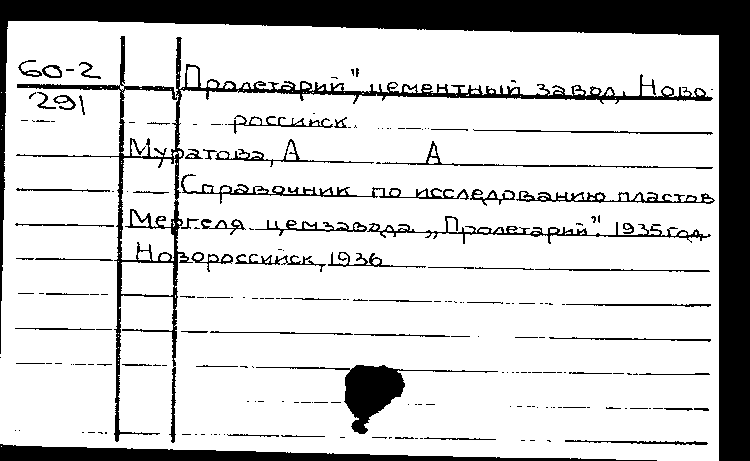 60-2
291
Пролетарий", цементный завод, Ново
российск.
Муратова, А А
Справочник по исследованию пластов
Мергеля цемзавода „Пролетарий". 1935 год.
Новороссийск, 1936